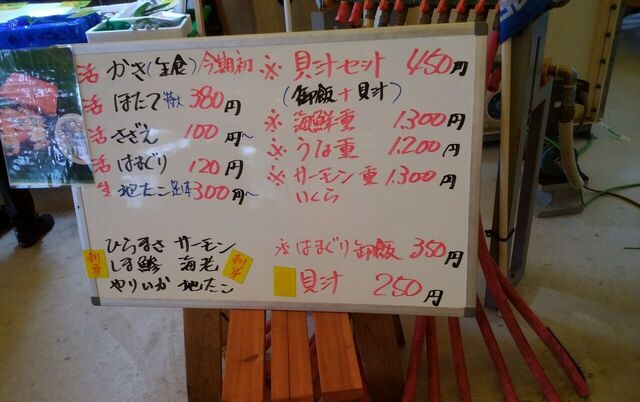 活 かき(生食)今期初
活 ほたて 特大 380円
活 さざえ 100円~
活 はまぐり 120円
生 地たこ 足1本 300円~
ひらまさ サーモン
しま鯵 海老
やりいか 地たこ
刺身
刺身
※ 貝汁セット 450円
(御飯+貝汁)
※ 海鮮重 1.300円
※ うな重 1.200円
※ サーモン重 1.300円
いくら
※ はまぐり御飯 350円
貝汁 250円